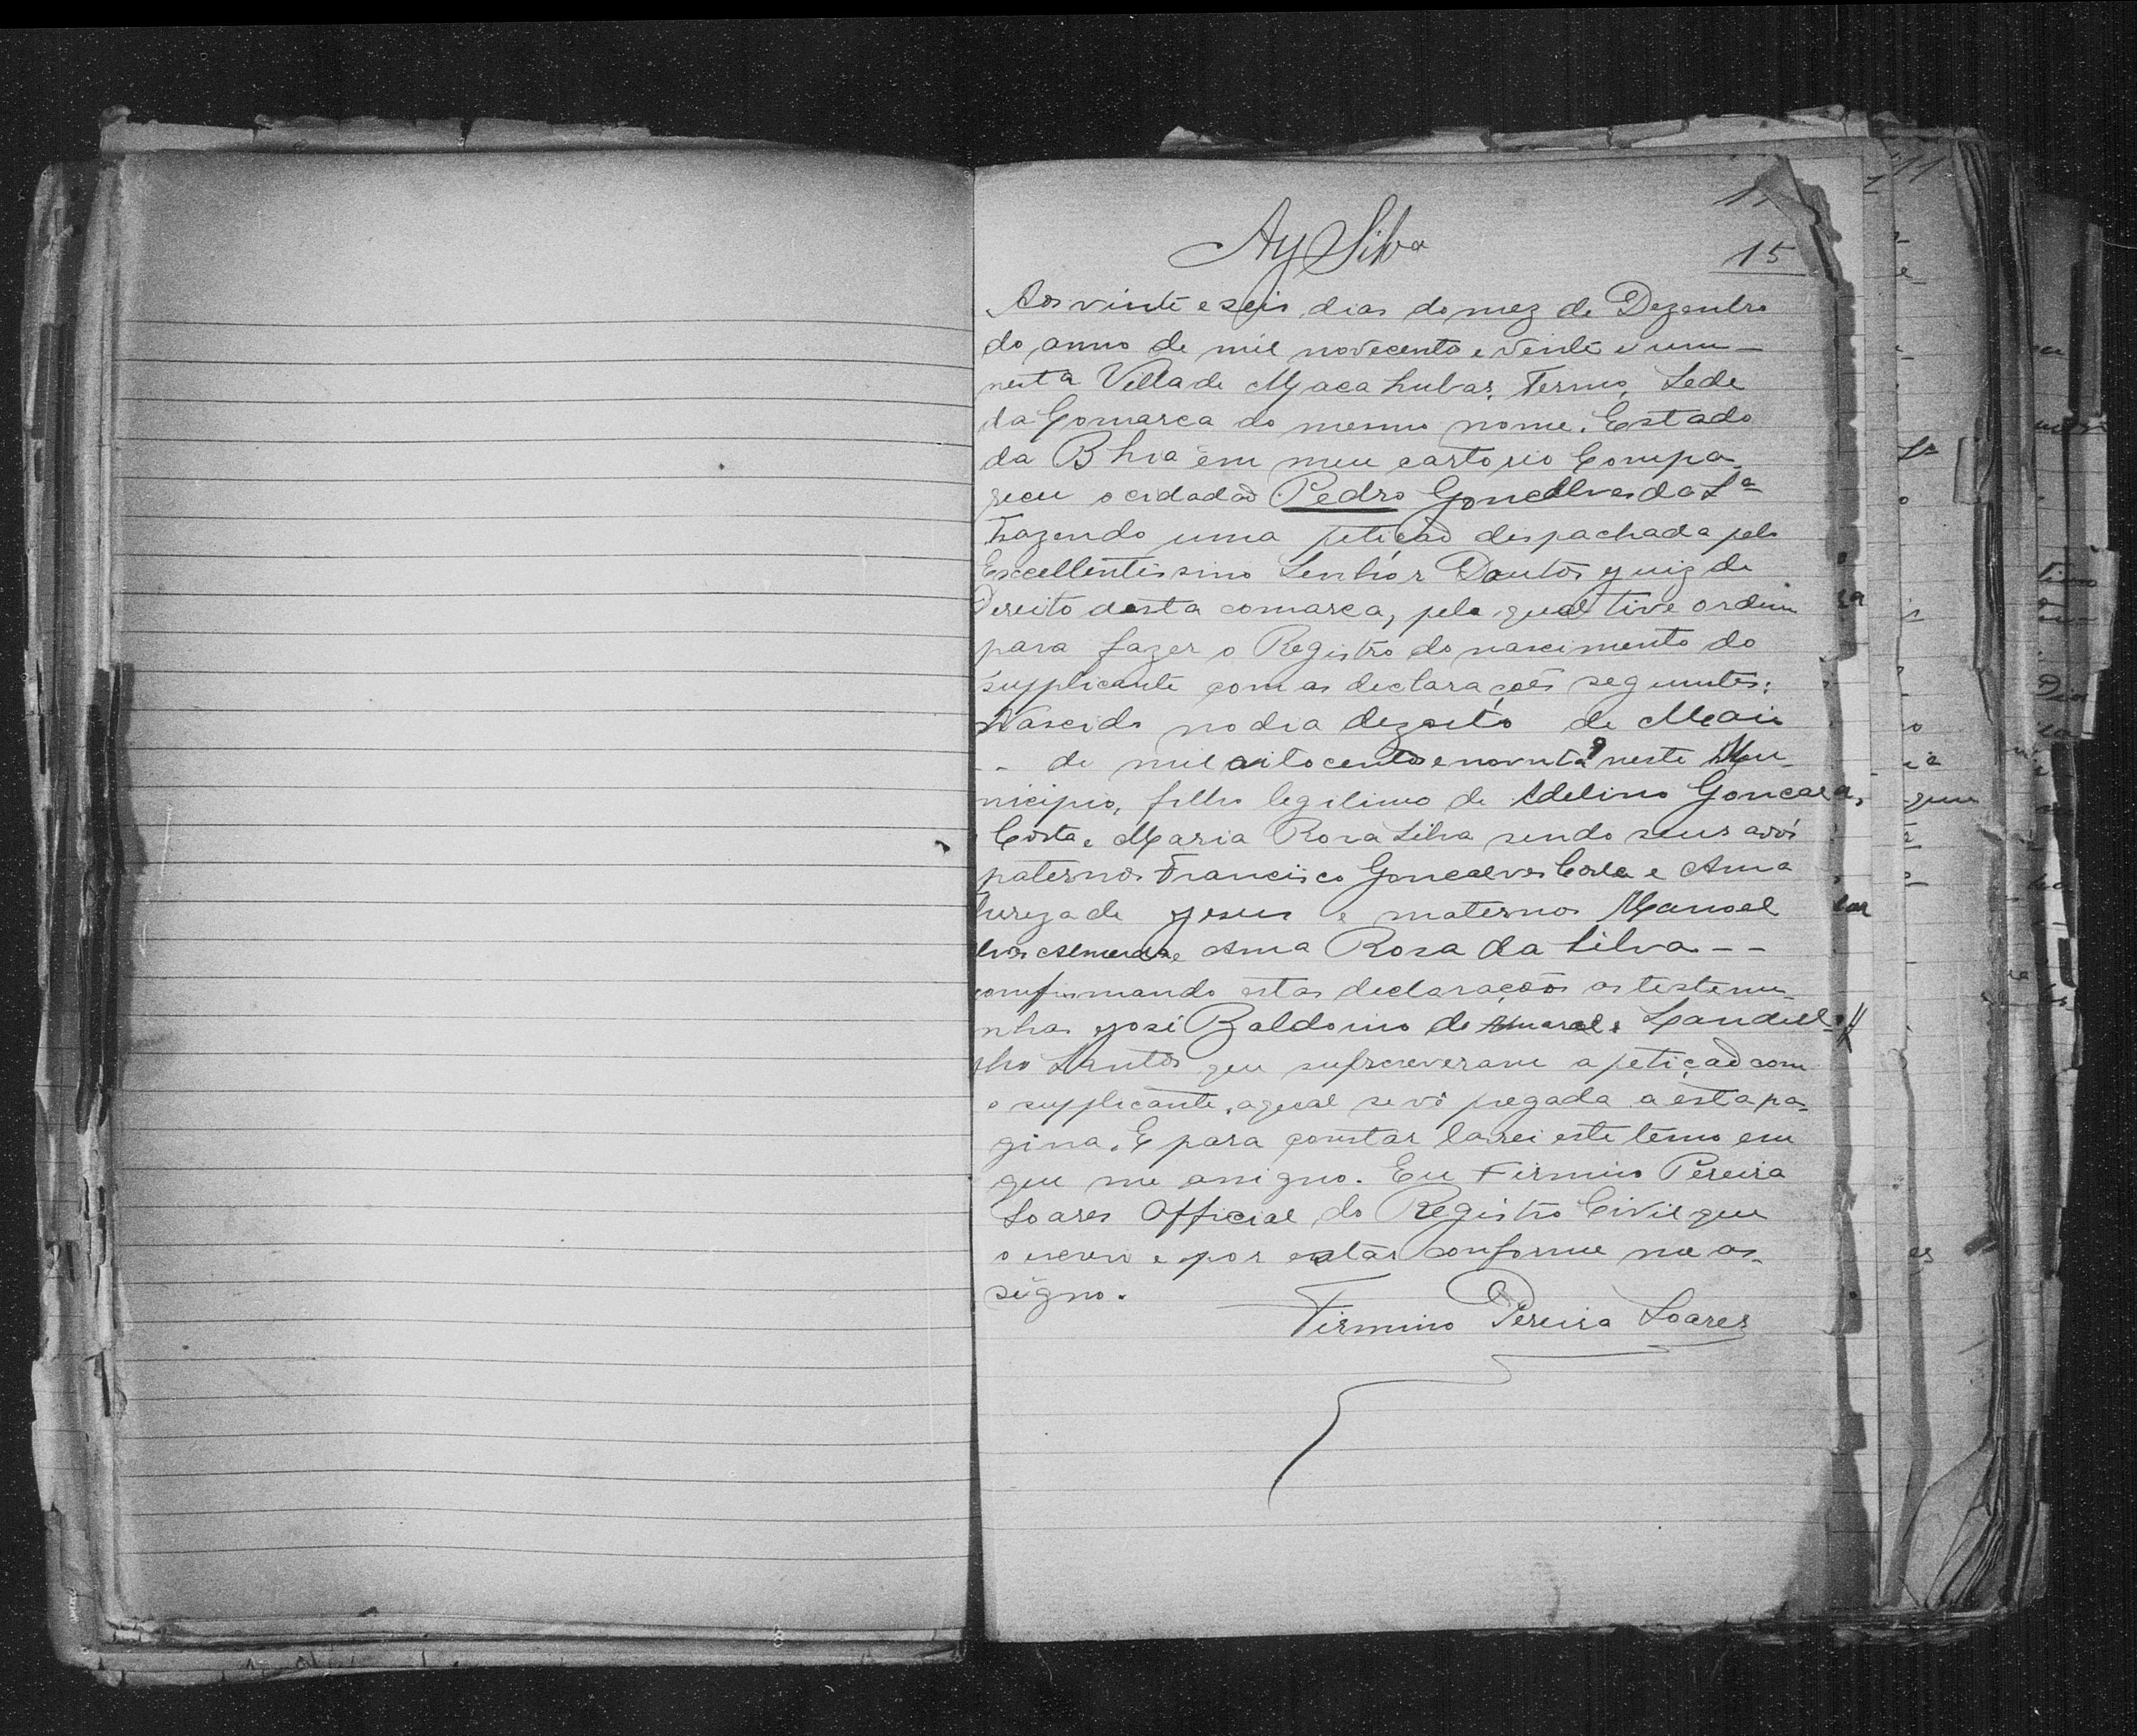 15
Ay Silva
Aos vinte e seis dias do mez de Dezembro
do anno de mil novecento e vinte e um
nesta Villa de Macahubas, Termo, Sede
da Comarca do mesmo nome. Estado
da Bhia em meu cartorio Compa-
receu o cidadaõ Pedro Goncalves da Sa
trazendo uma petiçaõ despachada pelo
Excellentissimo Senhór Doutor Juiz de
Direito desta comarca, pela qual tive ordem
para fazer o Registro do nascimento do
supplicante com as declarações seguintes:
Nascido no dia dezoito de Maio
-- de mil oitocentos e noventa neste Mu-
nicipio, filho legitimo de Adelino Gonca
Costa e Maria Rosa Silva sendo seus avós
paternos Francisco Goncalves Costa e Anna
de Jesus e maternos Manoel
Anna Rosa da Silva --
comfirmando estas declaraçoõs as testemu-
nhas José Baldoino de Amaral e
Santos que sufscreveram a petiçaõ com
o supplicante, a qual se vê pregada a esta pa-
gina. E para constar lavrei este termo em
que me assigno. Eu Firmino Pereira
Soares Official do Registro Civil que
o escrevi e por estar conforme me as-
signo.
Firmino Pereira Soares